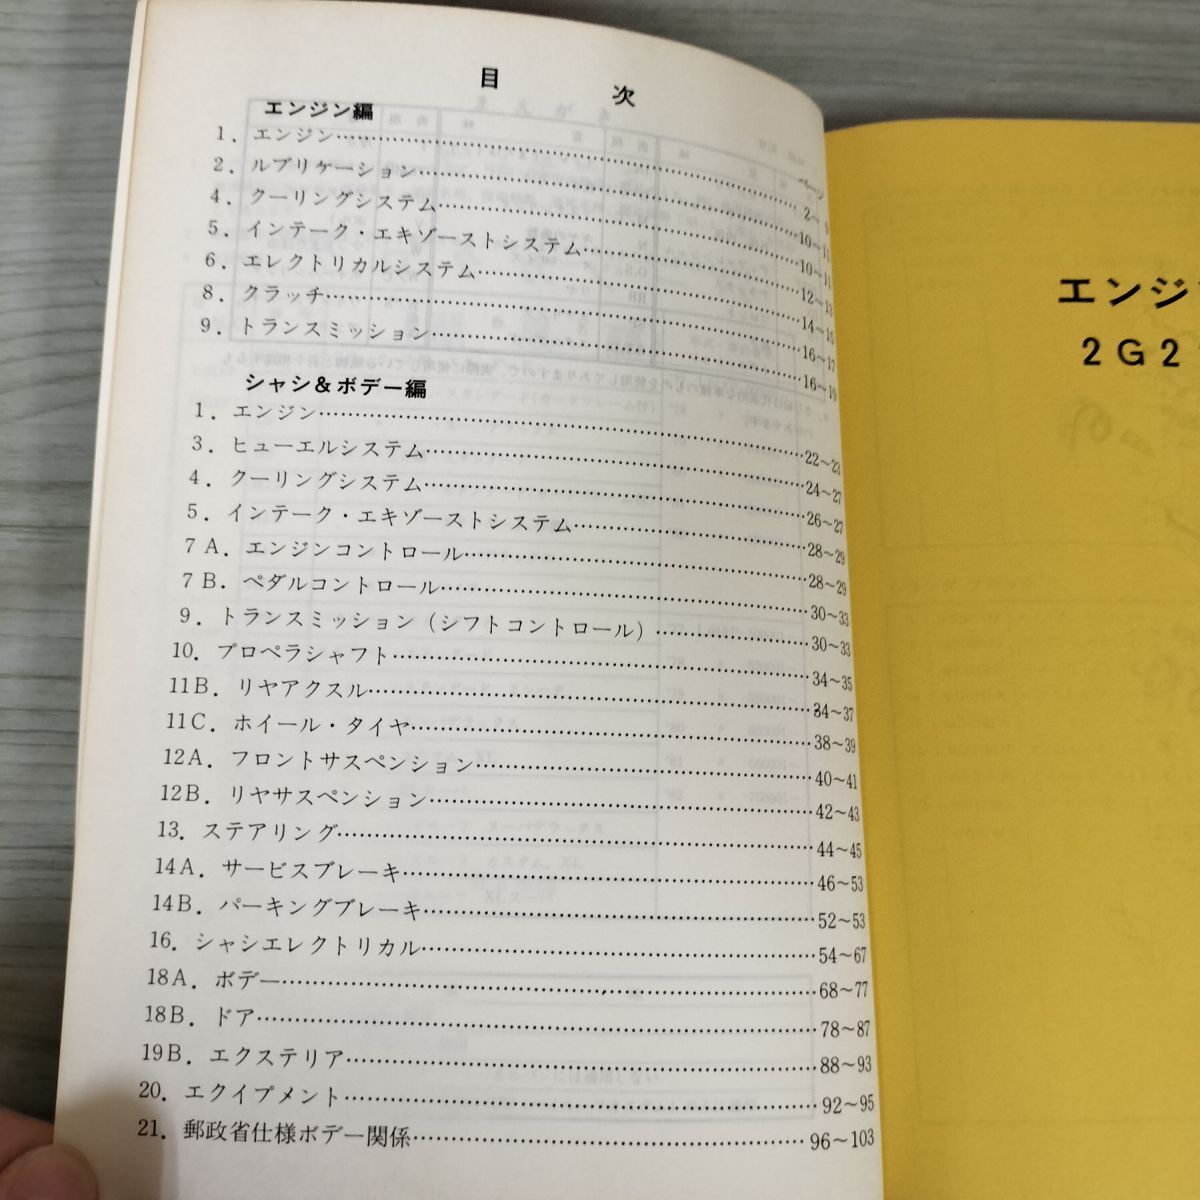 目　次
エンジン編
ページ
1. エンジン……2～9
2. ルブリケーション……10～11
4. クーリングシステム……10～11
5. インテーク・エキゾーストシステム……12～13
6. エレクトリカルシステム……14～15
8. クラッチ……16～17
9. トランスミッション……16～19
シャシ＆ボデー編
1. エンジン……22～23
3. ヒューエルシステム……24～27
4. クーリングシステム……26～27
5. インテーク・エキゾーストシステム……28～29
7A. エンジンコントロール……28～29
7B. ペダルコントロール……30～33
9. トランスミッション（シフトコントロール）……30～33
10. プロペラシャフト……34～35
11B. リヤアクスル……34～37
11C. ホイール・タイヤ……38～39
12A. フロントサスペンション……40～41
12B. リヤサスペンション……42～43
13. ステアリング……44～45
14A. サービスブレーキ……46～53
14B. パーキングブレーキ……52～53
16. シャシエレクトリカル……54～67
18A. ボデー……68～77
18B. ドア……78～87
19B. エクステリア……88～93
20. エクイプメント……92～95
21. 郵政省仕様ボデー関係……96～103
エンジ
2G2